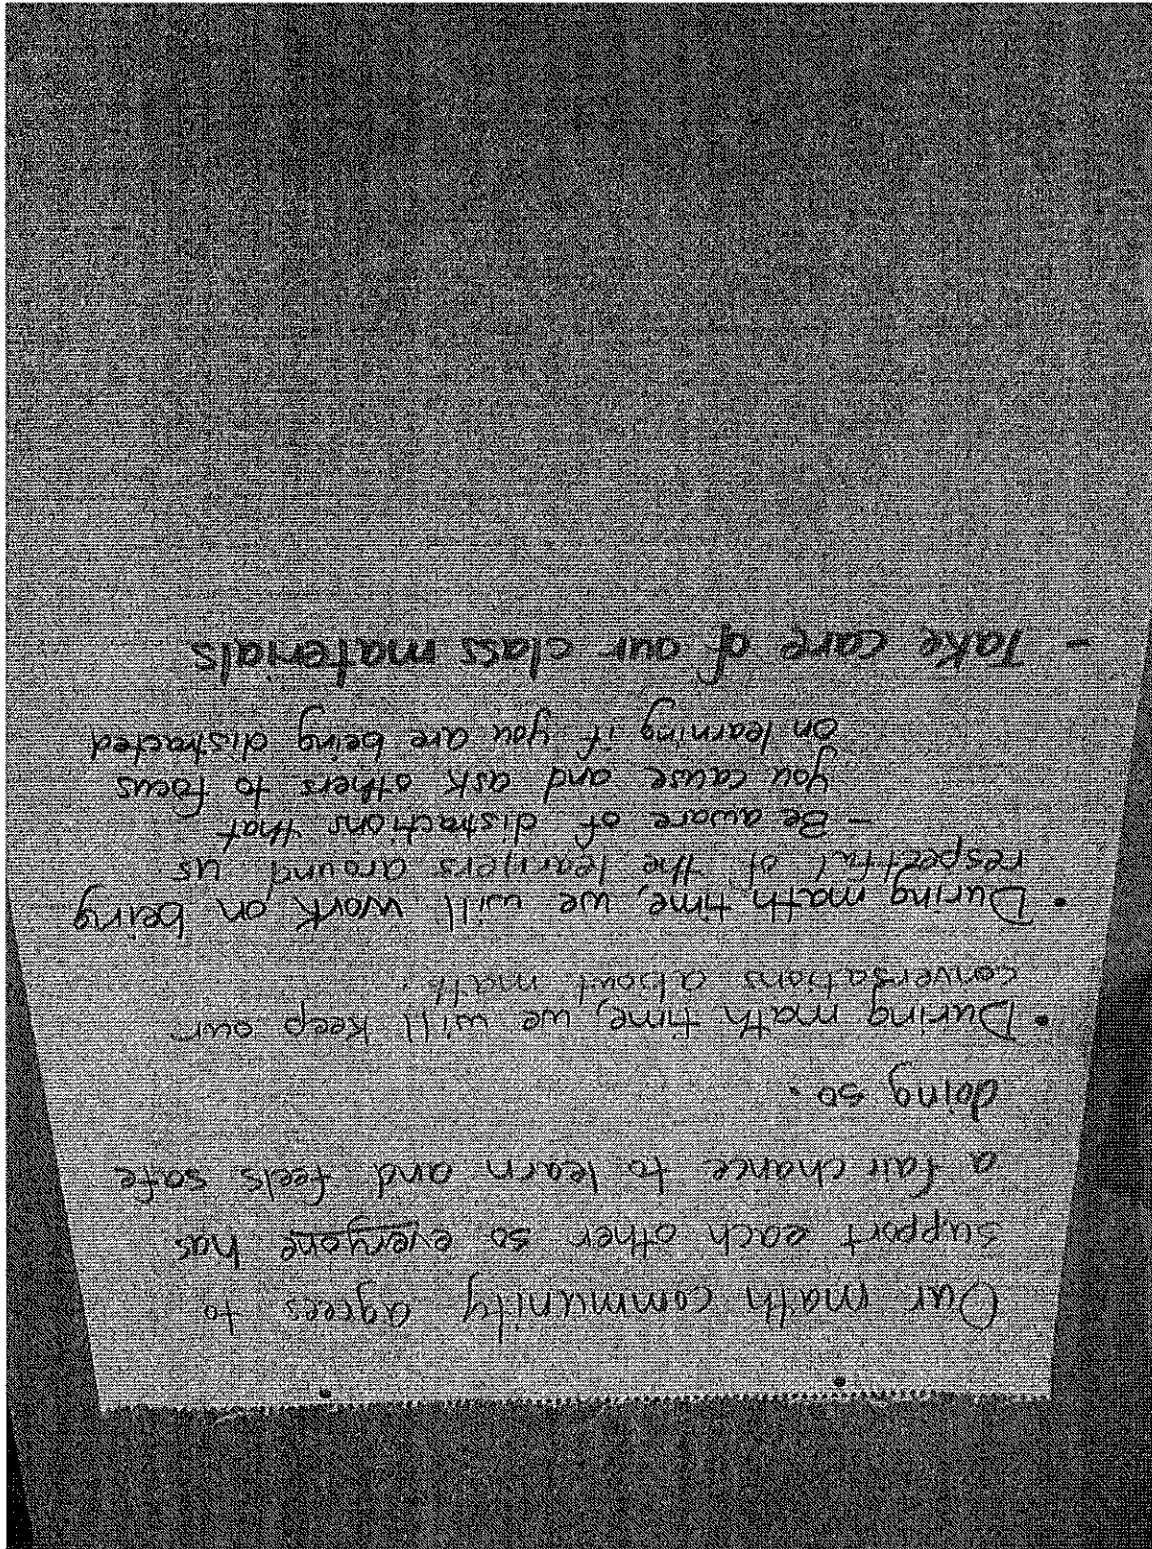 Our math community agrees to
support each other so everyone has
a fair chance to learn and feels safe
doing so.
• During math time, we will keep our
conversations about math.
• During math time, we will work on being
respectful of the learners around us
- Be aware of distractions that
you cause and ask others to focus
on learning if you are being distracted
- Take care of our class materials